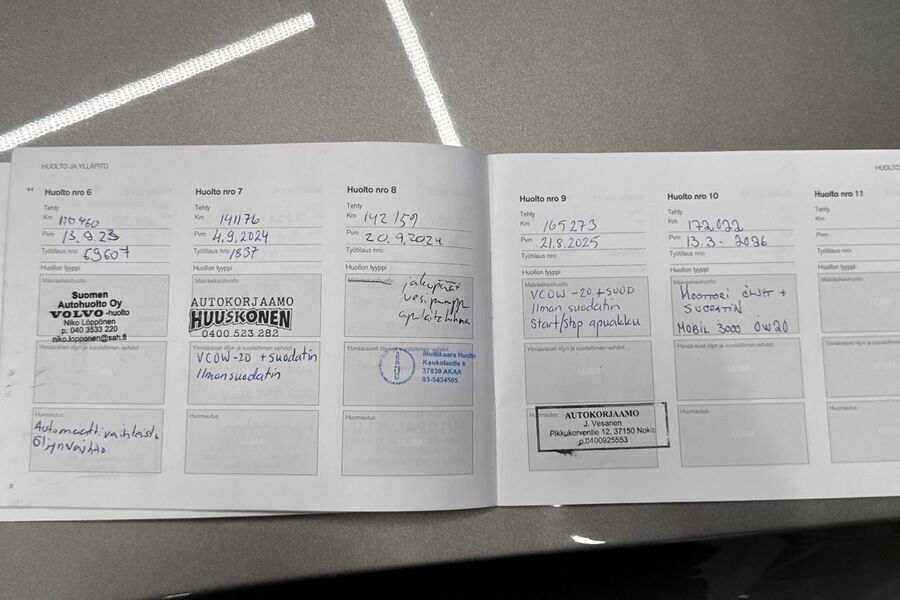 HUOLTO JA YLLÄPITO
Huolto nro 6
Tehty
Km 110 460
Pvm 13.9.23
Työtilaus nro: 69607
Huollon tyyppi
Määräaikaishuolto
Suomen
Autohuolto Oy
VOLVO -huolto
Niko Löppönen
p. 040 3533 220
niko.lopponen@sah.fi
Ylimääräiset öljyn ja suodattimen vaihdot
Huomautus
Automaattivaihteisto
Öljynvaihto
Huolto nro 7
Tehty
Km 141176
Pvm 4.9.2024
Työtilaus nro: 1837
Huollon tyyppi
AUTOKORJAAMO
HUUSKONEN
0400 523 282
Ylimääräiset öljyn ja suodattimen vaihdot
VCOW-20 + suodatin
Ilmansuodatin
Huomautus
Huolto nro 8
Tehty
Km 142 159
Pvm 20.9.2024
Työtilaus nro:
Huollon tyyppi
Määräaikaishuolto
jakopää
vesipumppu
apulaitehihna
Ylimääräiset öljyn ja suodattimen vaihdot
Multikaara Huolto
Kaukolantie 6
37830 AKAA
03-5434585
Huomautus
HUOLTO
Huolto nro 9
Tehty
Km 165 273
Pvm 21.8.2025
Työtilaus nro:
Huollon tyyppi
Määräaikaishuolto
VCOW-20 + SUOD
Ilman suodatin
Start/stop apuakku
Ylimääräiset öljyn ja suodattimen vaihdot
Huomautus
AUTOKORJAAMO
J. Vesanen
Pikkukorventie 12, 37150 Nokia
p.0400925553
Huolto nro 10
Tehty
Km 172.022
Pvm 13.3-2026
Työtilaus nro:
Huollon tyyppi
Määräaikaishuolto
MOOTTORI ÖLJYT +
SUODATIN
MOBIL 3000 0W20
Ylimääräiset öljyn ja suodattimen vaihdot
Huomautus
Huolto nro 11
Tehty
Km
Pvm
Työtilaus nro:
Huollon tyyppi
Määräaikaishuolto
Huomautus